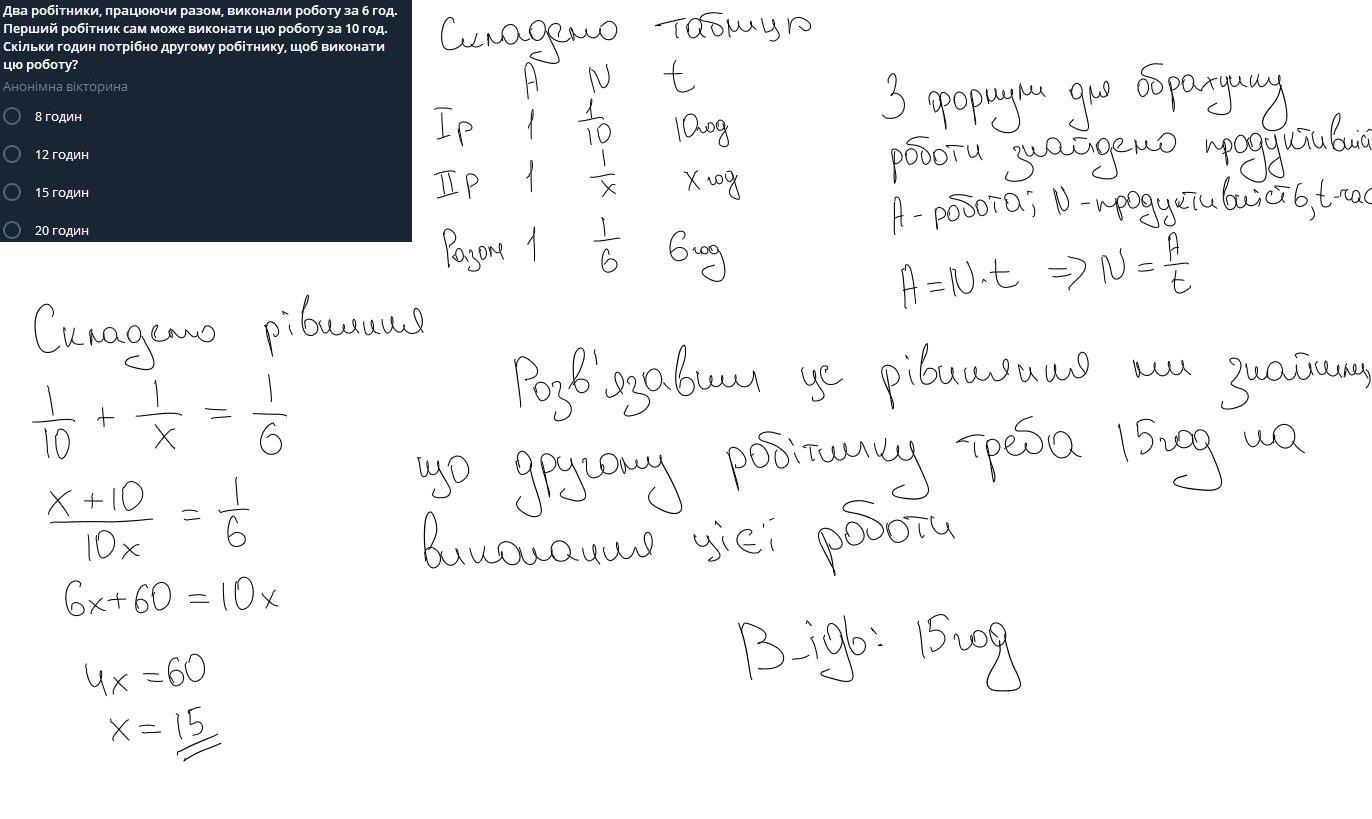 Два робітники, працюючи разом, виконали роботу за 6 год.
Перший робітник сам може виконати цю роботу за 10 год.
Скільки годин потрібно другому робітнику, щоб виконати
цю роботу?
Анонімна вікторина
8 годин
12 годин
15 годин
20 годин
Складемо таблицю
A N t
I р 1 1/10 10 год
II р 1 1/x x год
Разом 1 1/6 6 год
З формули для обрахунку
роботи знайдемо продуктивніс
A - робота; N - продуктивність, t - час
A = N · t => N = A/t
Складемо рівняння
1/10 + 1/x = 1/6
(x + 10)/10x = 1/6
6x + 60 = 10x
4x = 60
x = 15
Розв'язавши це рівняння ми знайшли,
що другому робітнику треба 15 год на
виконання цієї роботи
В-ідь: 15 год